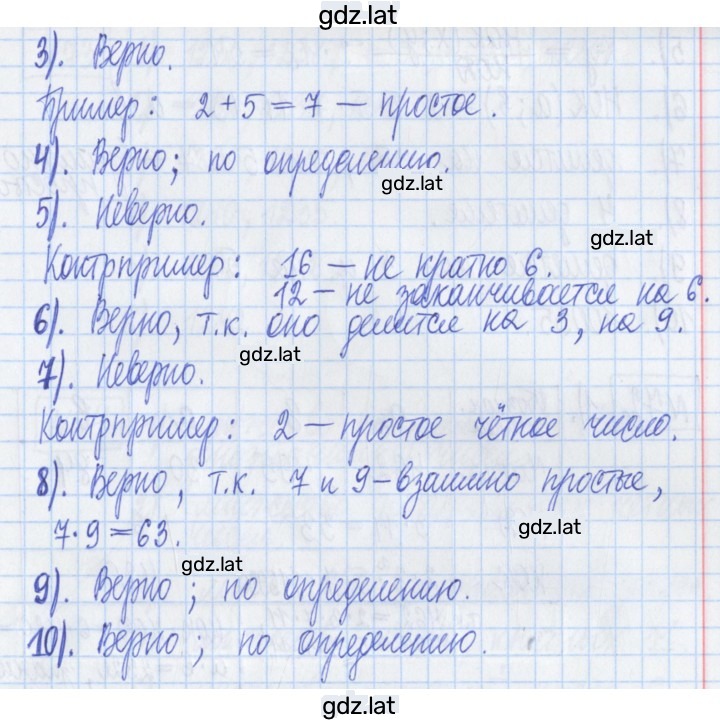 gdz.lat
3). Верно.
Пример: 2 + 5 = 7 — простое.
4). Верно; по определению.
gdz.lat
5). Неверно.
gdz.lat
Контрпример: 16 — не кратно 6.
12 — не заканчивается на 6.
6). Верно, т.к. оно делится на 3, на 9.
gdz.lat
7). Неверно.
Контрпример: 2 — простое чётное число.
8). Верно, т.к. 7 и 9 - взаимно простые,
7·9 = 63.
gdz.lat
gdz.lat
9). Верно; по определению.
10). Верно; по определению.
gdz.lat